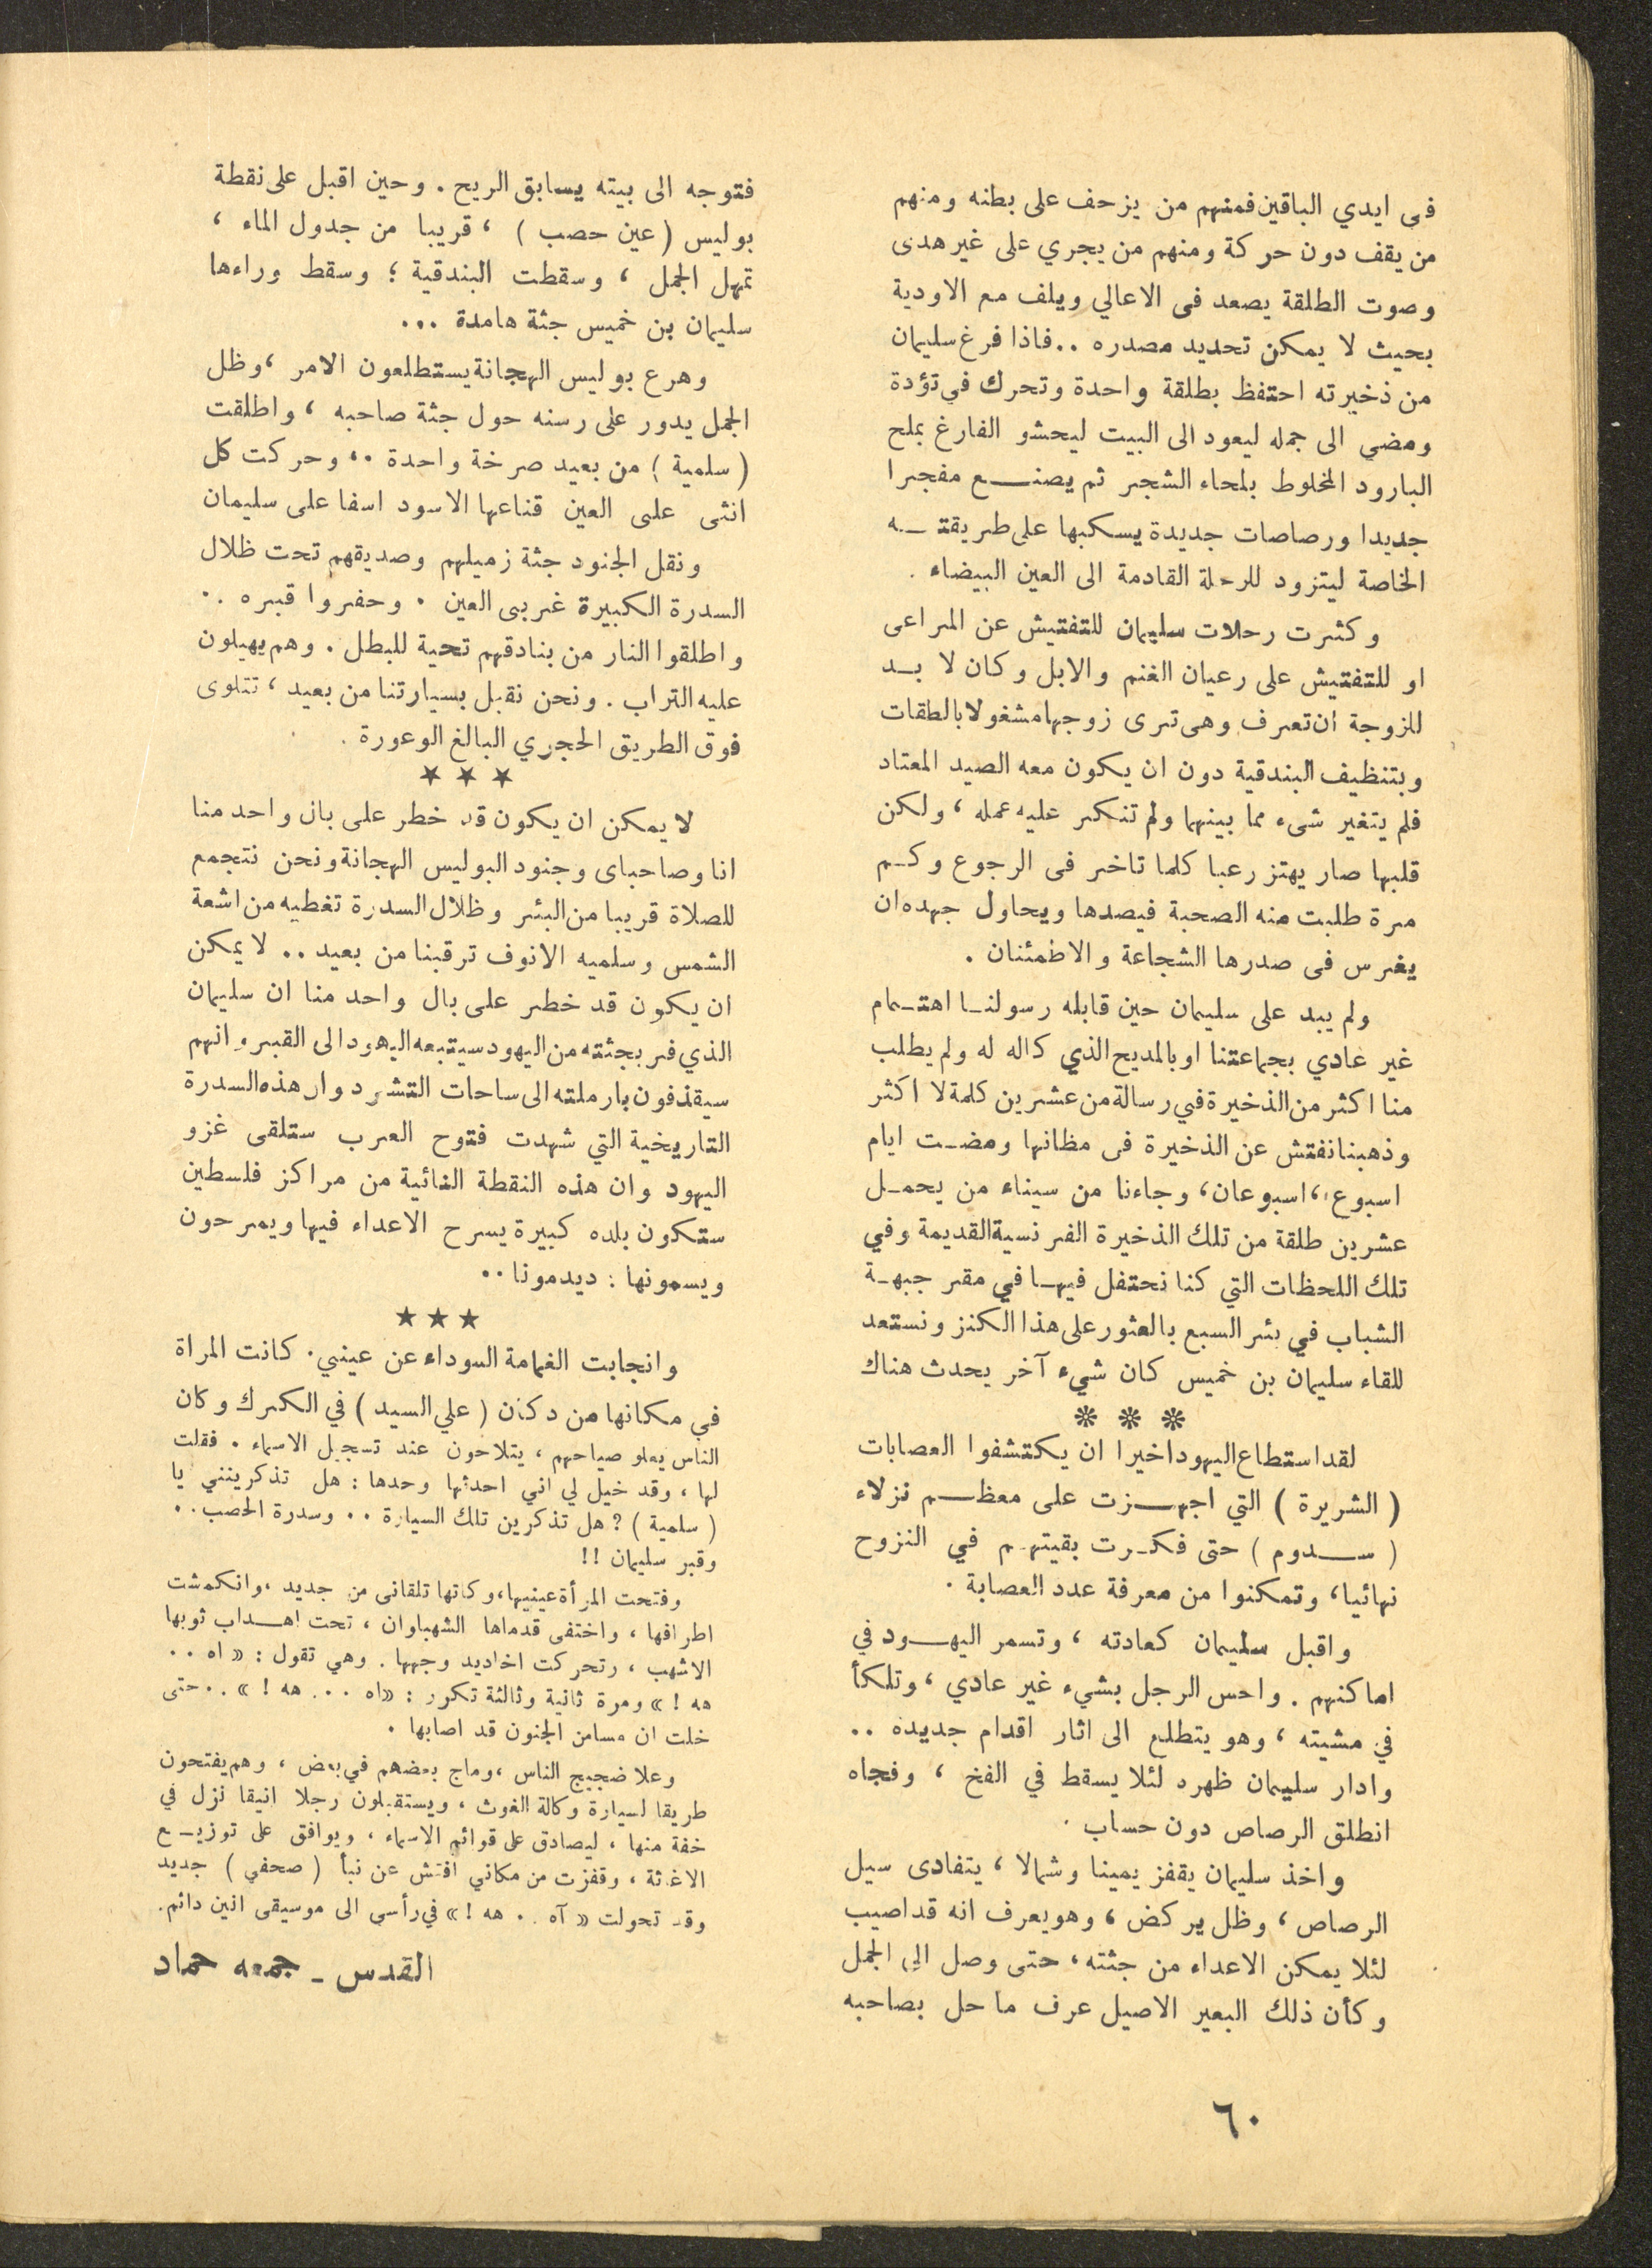 فى ايدي الباقين فمنهم من يزحف على بطنه ومنهم
من يقف دون حركة ومنهم من يجري على غير هدى
وصوت الطلقة يصعد فى الاعالي ويلف مع الاودية
بحيث لا يمكن تحديد مصدره .. فاذا فرغ سليمان
من ذخيرته احتفظ بطلقة واحدة وتحرك في تؤدة
ومضى الى جمله ليعود الى البيت ليحشو الفارغ بملح
البارود المخلوط بلحاء الشجر ثم يصنع مفجرا
جديدا ورصاصات جديدة يسكبها على طريقته
الخاصة ليتزود للرحلة القادمة الى العين البيضاء .
وكثرت رحلات سليمان للتفتيش عن المراعى
او للتفتيش على رعيان الغنم والابل وكان لا بد
للزوجة ان تعرف وهى ترى زوجها مشغولا بالطقات
وبتنظيف البندقية دون ان يكون معه الصيد المعتاد
فلم يتغير شىء مما بينهما ولم تنكر عليه عمله ، ولكن
قلبها صار يهتز رعبا كلما تاخر فى الرجوع وكم
مرة طلبت منه الصحبة فيصدها ويحاول جهده ان
يغرس فى صدرها الشجاعة والاطمئنان .
ولم يبد على سليمان حين قابله رسولنا اهتمام
غير عادي بجماعتنا او بالمديح الذي كاله له ولم يطلب
منا اكثر من الذخيرة في رسالة من عشرين كلمة لا اكثر
وذهبنا نفتش عن الذخيرة فى مظانها ومضت ايام
اسبوع ، اسبوعان ، وجاءنا من سيناء من يحمل
عشرين طلقة من تلك الذخيرة الفرنسية القديمة وفي
تلك اللحظات التي كنا نحتفل فيها في مقر جبهة
الشباب في بئر السبع بالعثور على هذا الكنز ونستعد
للقاء سليمان بن خميس كان شيء آخر يحدث هناك
❊ ❊ ❊
لقد استطاع اليهود اخيرا ان يكتشفوا العصابات
( الشريرة ) التي اجهزت على معظم نزلاء
( سدوم ) حتى فكرت بقيتهم في النزوح
نهائيا ، وتمكنوا من معرفة عدد العصابة .
واقبل سليمان كعادته ، وتسمر اليهود في
اماكنهم . واحس الرجل بشيء غير عادي ، وتلكأ
في مشيته ، وهو يتطلع الى اثار اقدام جديدة ..
وادار سليمان ظهره لئلا يسقط في الفخ ، وفجاه
انطلق الرصاص دون حساب .
واخذ سليمان يقفز يمينا وشمالا ، يتفادى سيل
الرصاص ، وظل يركض ، وهو يعرف انه قد اصيب
لئلا يمكن الاعداء من جثته ، حتى وصل الى الجمل
وكأن ذلك البعير الاصيل عرف ما حل بصاحبه
فتوجه الى بيته يسابق الريح . وحين اقبل على نقطة
بوليس ( عين حصب ) ، قريبا من جدول الماء ،
تمهل الجمل ، وسقطت البندقية ؛ وسقط وراءها
سليمان بن خميس جثة هامدة ...
وهرع بوليس الهجانة يستطلعون الامر ، وظل
الجمل يدور على رسنه حول جثة صاحبه ، واطلقت
( سلمية ) من بعيد صرخة واحدة .. وحركت كل
انثى على العين قناعها الاسود اسفا على سليمان
ونقل الجنود جثة زميلهم وصديقهم تحت ظلال
السدرة الكبيرة غربى العين . وحفروا قبره ..
واطلقوا النار من بنادقهم تحية للبطل . وهم يهيلون
عليه التراب . ونحن نقبل بسيارتنا من بعيد ، تتلوى
فوق الطريق الحجري البالغ الوعورة .
★ ★ ★
لا يمكن ان يكون قد خطر على بال واحد منا
انا وصاحباى وجنود البوليس الهجانة ونحن نتجمع
للصلاة قريبا من البئر وظلال السدرة تغطيه من اشعة
الشمس وسلميه الانوف ترقبنا من بعيد .. لا يمكن
ان يكون قد خطر على بال واحد منا ان سليمان
الذي فر بجثته من اليهود سيتبعه اليهود الى القبر وانهم
سيقذفون بارملته الى ساحات التشرد وان هذه السدرة
التاريخية التي شهدت فتوح العرب ستلقى غزو
اليهود وان هذه النقطة النائية من مراكز فلسطين
ستكون بلده كبيرة يسرح الاعداء فيها ويمرحون
ويسمونها : ديدمونا ..
★ ★ ★
وانجابت الغمامة السوداء عن عيني . كانت المراة
في مكانها من دكان ( علي السيد ) في الكرك وكان
الناس يعلو صياحهم ، يتلاحون عند تسجيل الاسماء . فقلت
لها ، وقد خيل لي اني احدثها وحدها : هل تذكرينني يا
( سلمية ) ? هل تذكرين تلك السيارة .. وسدرة الحصب ..
وقبر سليمان !!
وفتحت المرأة عينيها ، وكانها تلقانى من جديد ، وانكمشت
اطرافها ، واختفى قدماها الشهباوان ، تحت اهداب ثوبها
الاشهب ، وتحركت اخاديد وجهها . وهي تقول : « اه ..
هه ! » ومرة ثانية وثالثة تكرر : « اه ... هه ! » .. حتى
خلت ان مسا من الجنون قد اصابها .
وعلا ضجيج الناس ، وماج بعضهم في بعض ، وهم يفتحون
طريقا لسيارة وكالة الغوث ، ويستقبلون رجلا انيقا نزل في
خفة منها ، ليصادق على قوائم الاسماء ، ويوافق على توزيع
الاغاثة ، وقفزت من مكاني افتش عن نبأ ( صحفي ) جديد
وقد تحولت « آه .. هه ! » في رأسى الى موسيقى انين دائم .
القدس ـ جمعه حماد
٦٠